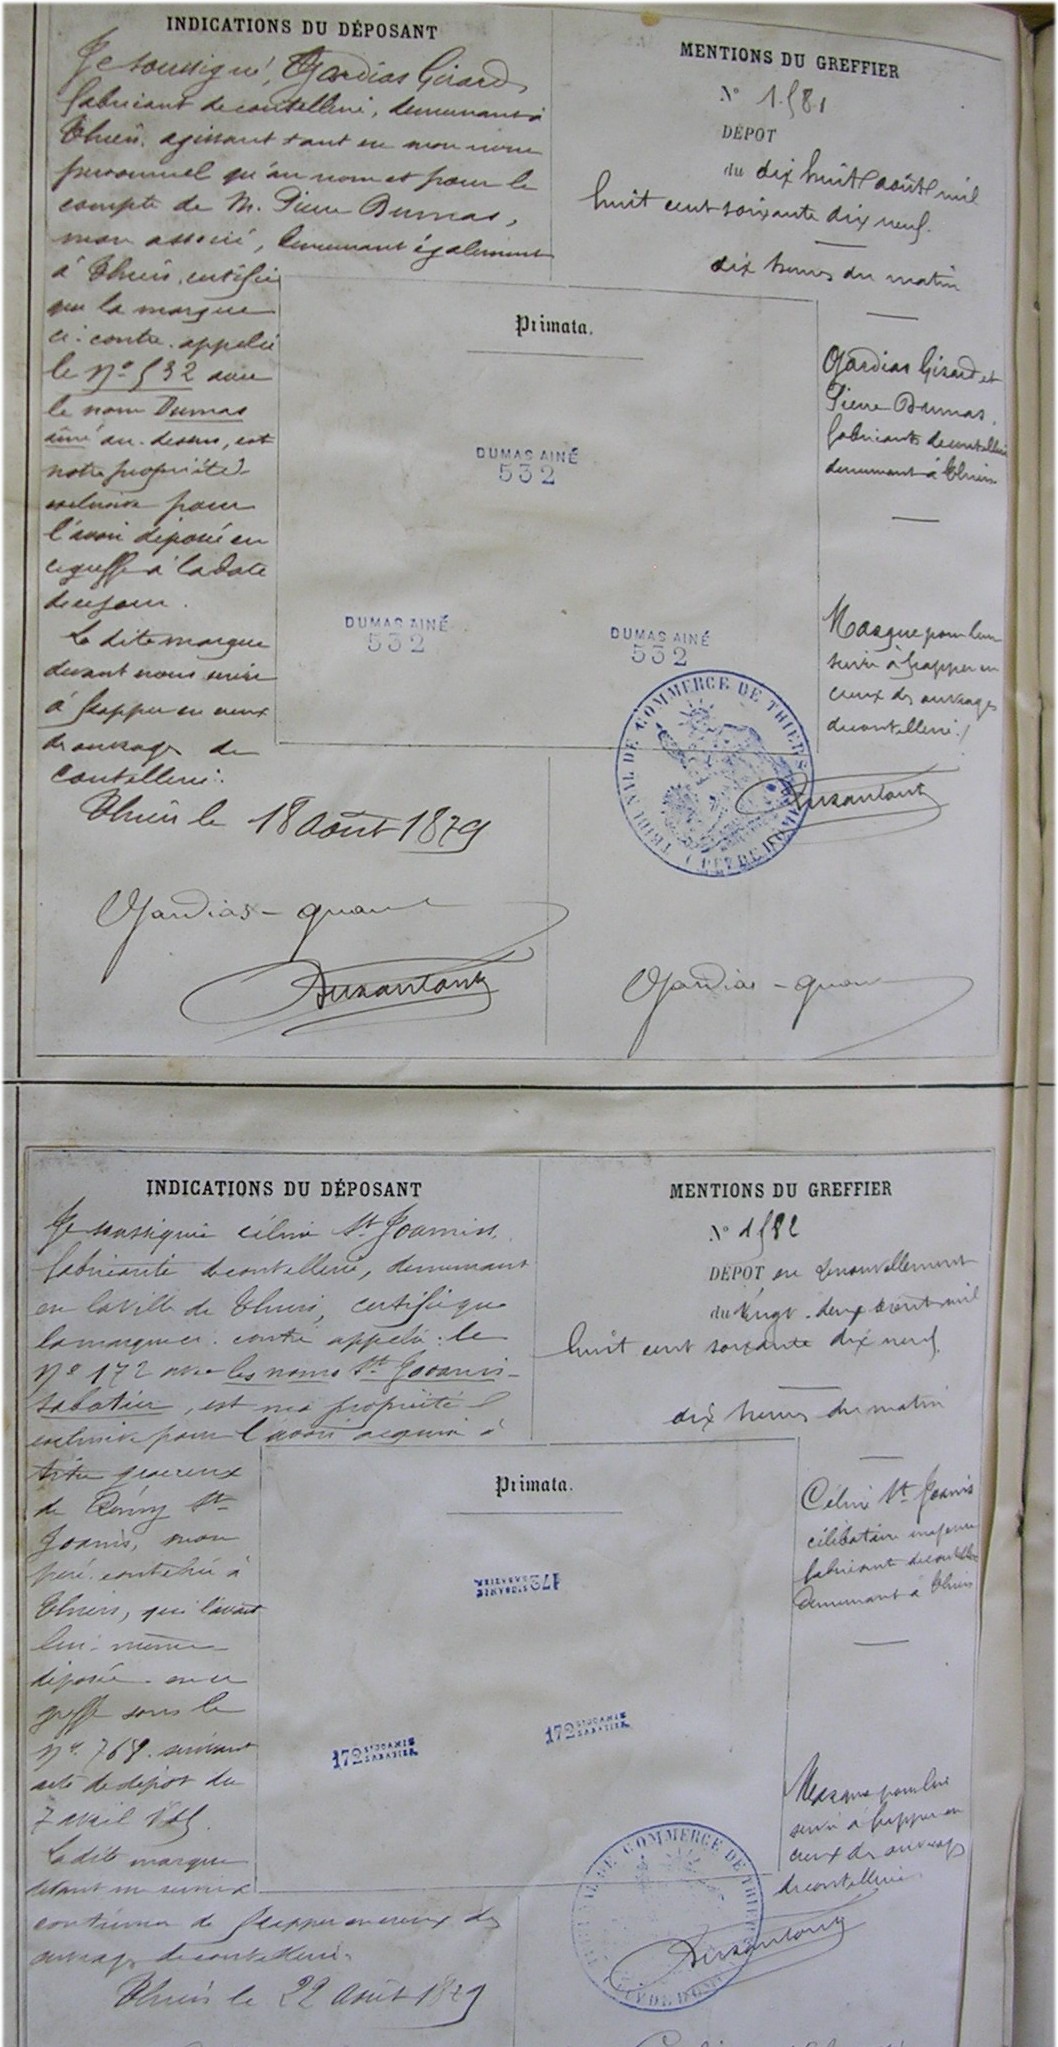 INDICATIONS DU DÉPOSANT
Je soussigné, Gardias Girard
fabricant de coutellerie, demeurant à
Thiers, agissant tant en mon nom
personnel qu'au nom et pour le
compte de M. Pierre Dumas,
mon associé, demeurant également
à Thiers, certifie
que la marque
ci-contre appelée
le No 532 avec
le nom Dumas
ainé au-dessus, est
notre propriété
exclusive pour
l'avoir déposée en
ce greffe à la date
de ce jour.
La dite marque
devant nous servir
à frapper en creux
des ouvrages de
coutellerie.
Thiers le 18 Août 1879
Gardias-
MENTIONS DU GREFFIER
No 1581
DÉPOT
du dix huit août mil
huit cent soixante dix neuf.
dix heures du matin
Primata.
DUMAS AINÉ
532
DUMAS AINÉ
532
DUMAS AINÉ
532
Gardias Girard et
Pierre Dumas,
fabricants de coutellerie
demeurant à Thiers
Marque pour leur
servir à frapper en
creux des ouvrages
de coutellerie.
TRIBUNAL DE COMMERCE DE THIERS
Gardias-
INDICATIONS DU DÉPOSANT
Je soussignée Céline St Joannis,
fabricante de coutellerie, demeurant
en la ville de Thiers, certifie que
la marque ci-contre appelée le
No 172 avec les noms St Joannis-
Sabatier, est ma propriété
exclusive pour l'avoir acquise à
titre
de Rémy St
Joanis, mon
père, coutelier à
Thiers, qui l'avait
lui-même
déposée en ce
greffe sous le
suivant
acte de dépôt du
7 avril
La dite marque
devant me servir à
continuer de frapper en creux des
ouvrages de coutellerie.
Thiers le 22 Août 1879
MENTIONS DU GREFFIER
No 1582
DÉPOT en renouvellement
du vingt-deux août mil
huit cent soixante dix neuf.
dix heures du matin
Primata.
172 ST JOANIS
SABATIER
172 ST JOANIS
SABATIER
172 ST JOANIS
SABATIER
Céline St Joanis
célibataire majeure
fabricant de coutellerie
demeurant à Thiers
Marque pour lui
servir à frapper en
creux des ouvrages
de coutellerie
TRIBUNAL DE COMMERCE DE THIERS